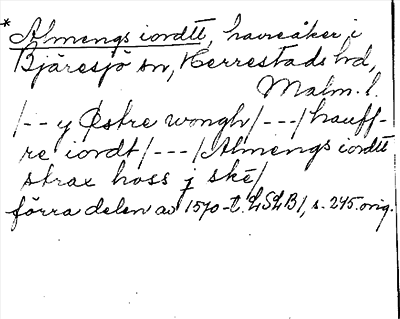 * Almengs iordtt, havreåker i
Bjäresjö sn, Herrestads hd,
Malm. l.
/-- y Østre wongh/---/hauff-
re iordt/---/Almengs iordtt
strax hoss j ske/
förra delen av 1570-t. LSLB1, s. 245. orig.